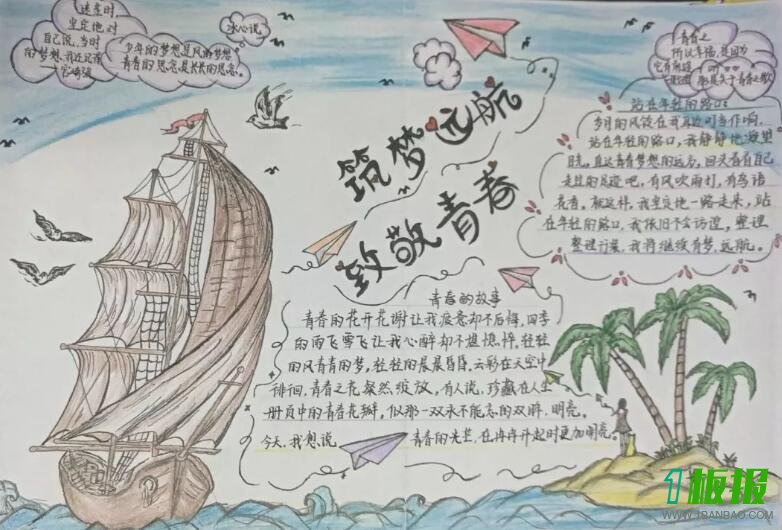 迷茫时,
坚定地对
自己说,当时
的梦想,我还记得
宫崎骏
冰心说
少年的梦想是风的梦想
青春的思念是长长的思念。
筑梦远航
致敬青春
青春之
所以幸福,是因为
它有前途
站在年轻的路口
岁月的风铃在我耳边叮当作响,
站在年轻的路口,我静静地凝望
目光,直达青春梦想的远方,回头看看自己
走过的足迹吧,有风吹雨打,有鸟语
花香。就这样,我坚定地一路走来,站
在年轻的路口,我依旧不会彷徨,整理
整理行装,我将继续有梦,远航。
青春的故事
青春的花开花谢让我疲惫却不后悔,四季
的雨飞雪飞让我心醉却不堪憔悴。轻轻
的风青青的梦,轻轻的晨晨昏昏,云彩在天空中
徘徊,青春之花粲然绽放,有人说,珍藏在人生
册页中的青春花瓣,似那一双永不能忘的双眸,明亮。
今天,我想说 青春的光芒,在冉冉升起时更加明亮。
1板报
WWW.1BANBAO.COM